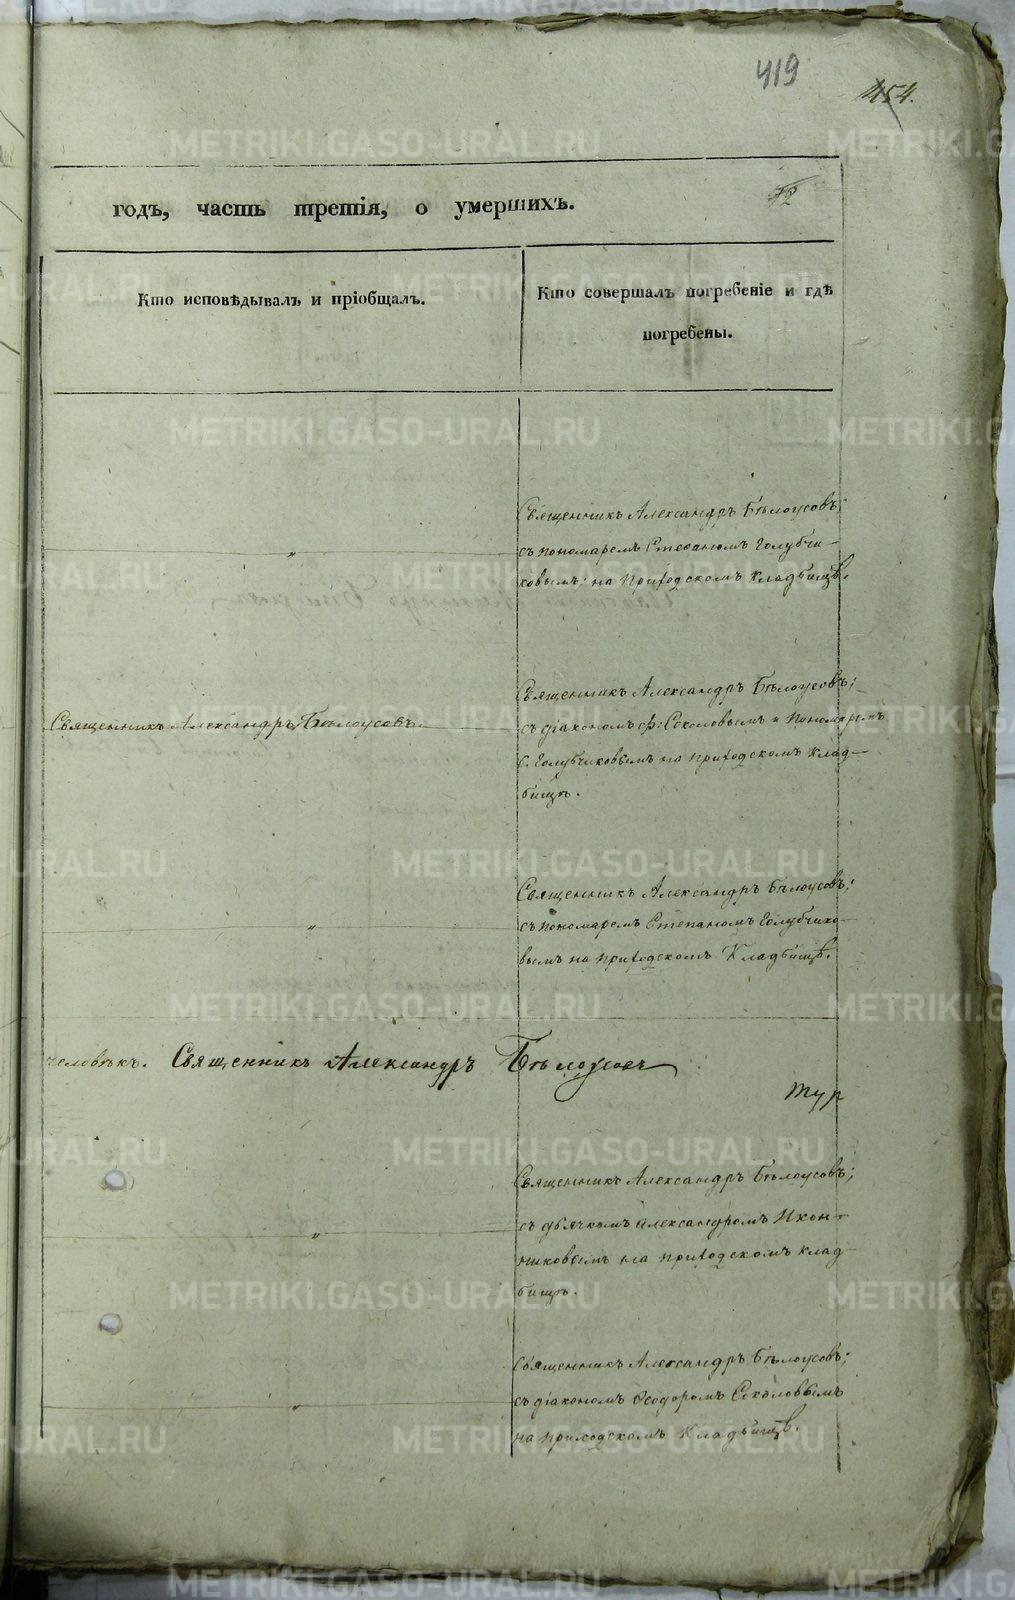 419
454.
72
годъ, часть третія, о умершихъ.
Кто исповѣдывалъ и пріобщалъ.
Кто совершалъ погребеніе и гдѣ
погребены.
Священникъ Александръ Бѣлоусовъ;
съ пономаремъ Стефаномъ Голубчи-
ковымъ; на приходскомъ кладбищѣ.
"
Священникъ Александръ Бѣлоусовъ.
Священникъ Александръ Бѣлоусовъ;
съ діакономъ Ѳ: Соколовымъ и пономаремъ
С. Голубчиковымъ на приходскомъ клад-
бищѣ.
Священникъ Александръ Бѣлоусовъ;
съ пономаремъ Степаномъ Голубчико-
вымъ на приходскомъ кладбищѣ.
"
человѣкъ. Священникъ Александръ Бѣлоусовъ
Священникъ Александръ Бѣлоусовъ;
съ дьячкомъ Александромъ Икон-
никовымъ на приходскомъ клад-
бищѣ.
"
Священникъ Александръ Бѣлоусовъ;
съ діакономъ Ѳеодоромъ Соколовымъ
на приходскомъ кладбищѣ.
"
METRIKI.GASO-URAL.RU